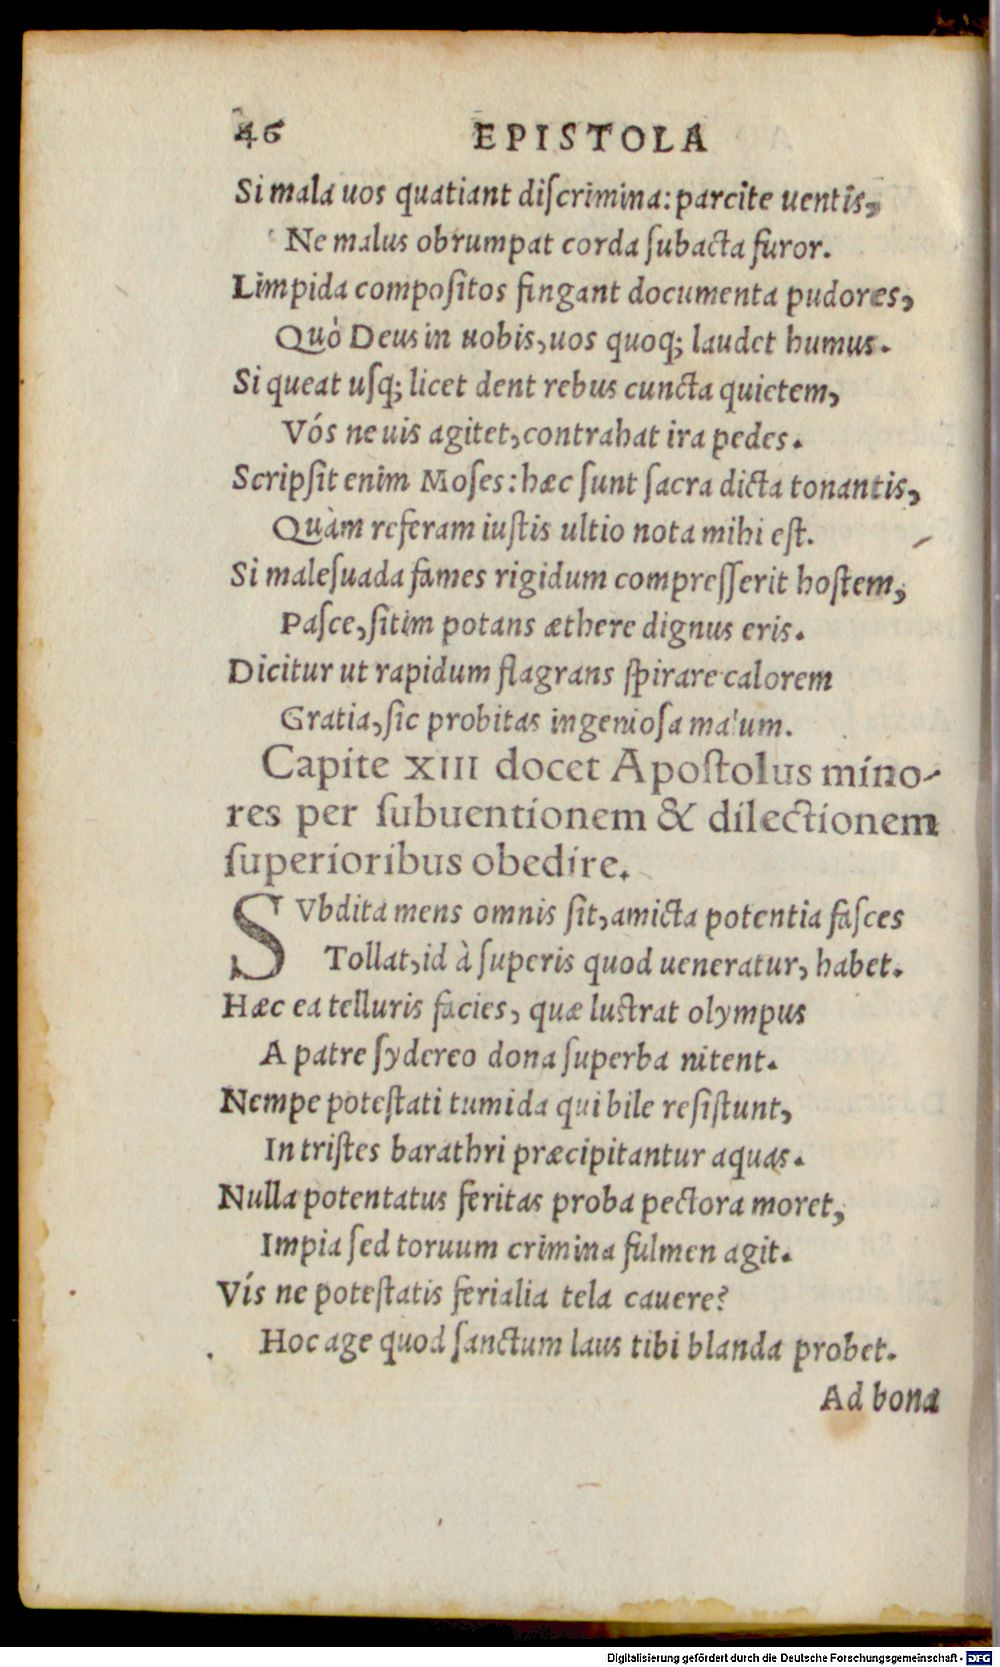 46 EPISTOLA
Si mala uos quatiant diſcrimina: parcite uentis,
Ne malus obrumpat corda ſubacta furor.
Limpida compoſitos fingant documenta pudores,
Quò Deus in uobis, uos quoq; laudet humus.
Si queat uſq; licet dent rebus cuncta quietem,
Vós ne uis agitet, contrahat ira pedes.
Scripſit enim Moſes: hæc ſunt ſacra dicta tonantis,
Quàm referam iuſtis ultio nota mihi eſt.
Si maleſuada fames rigidum compreſſerit hoſtem,
Paſce, ſitim potans æthere dignus eris.
Dicitur ut rapidum flagrans ſpirare calorem
Gratia, ſic probitas ingenioſa malum.
Capite XIII docet Apoſtolus mino-
res per ſubuentionem & dilectionem
ſuperioribus obedire.
SVbdita mens omnis ſit, amicta potentia faſces
Tollat, id à ſuperis quod ueneratur, habet.
Hæc ea telluris facies, quæ luſtrat olympus
A patre ſydereo dona ſuperba nitent.
Nempe poteſtati tumida qui bile reſiſtunt,
In triſtes barathri præcipitantur aquas.
Nulla potentatus feritas proba pectora moret,
Impia ſed toruum crimina fulmen agit.
Vís ne poteſtatis ferialia tela cauere?
Hoc age quod ſanctum laus tibi blanda probet.
Ad bona
Digitalisierung gefördert durch die Deutsche Forschungsgemeinschaft - DFG